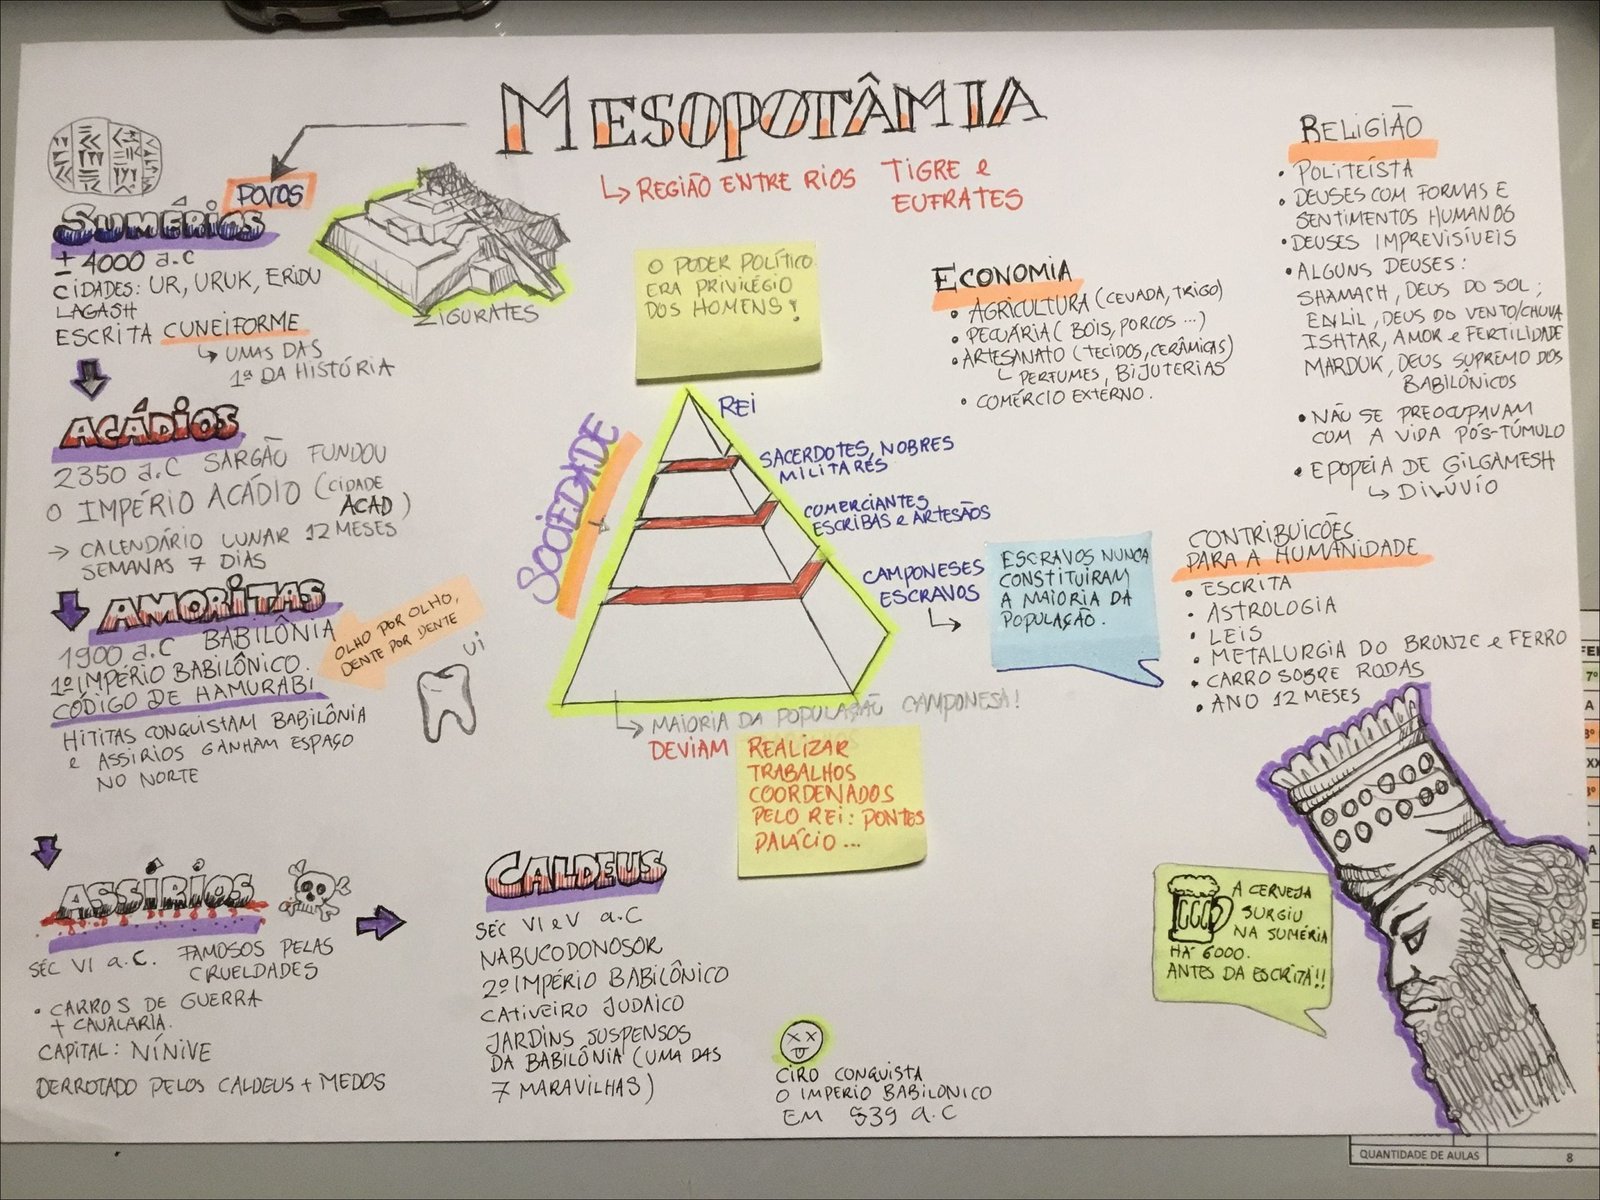 MESOPOTÂMIA
↳ REGIÃO ENTRE RIOS TIGRE e
EUFRATES
POVOS
SUMÉRIOS
± 4000 a.c
CIDADES: UR, URUK, ERIDU
LAGASH
ESCRITA CUNEIFORME
↳ UMAS DAS
1ª DA HISTÓRIA
ZIGURATES
ACÁDIOS
2350 a.C SARGÃO FUNDOU
O IMPÉRIO ACÁDIO (CIDADE
ACAD)
→ CALENDÁRIO LUNAR 12 MESES
SEMANAS 7 DIAS
AMORITAS
1900 a.C BABILÔNIA
1º IMPÉRIO BABILÔNICO.
CÓDIGO DE HAMURABI
OLHO POR OLHO,
DENTE POR DENTE
UI
HITITAS CONQUISTAM BABILÔNIA
e ASSIRIOS GANHAM ESPAÇO
NO NORTE
ASSÍRIOS
SÉC VI a.C. FAMOSOS PELAS
CRUELDADES
• CARROS DE GUERRA
+ CAVALARIA.
CAPITAL: NÍNIVE
DERROTADO PELOS CALDEUS + MEDOS
CALDEUS
SÉC VI e V a.C
NABUCODONOSOR
2º IMPÉRIO BABILÔNICO
CATIVEIRO JUDAICO
JARDINS SUSPENSOS
DA BABILÔNIA (UMA DAS
7 MARAVILHAS)
CIRO CONQUISTA
O IMPERIO BABILONICO
EM 539 a.C
O PODER POLÍTICO
ERA PRIVILÉGIO
DOS HOMENS!
SOCIEDADE
REI
SACERDOTES, NOBRES
MILITARES
COMERCIANTES
ESCRIBAS e ARTESÃOS
CAMPONESES
ESCRAVOS
ESCRAVOS NUNCA
CONSTITUIRAM
A MAIORIA DA
POPULAÇÃO.
↳ MAIORIA DA POPULAÇÃO CAMPONESA!
DEVIAM REALIZAR
TRABALHOS
COORDENADOS
PELO REI: PONTES
PALÁCIO...
ECONOMIA
• AGRICULTURA (CEVADA, TRIGO)
• PECUÁRIA (BOIS, PORCOS...)
• ARTESANATO (TECIDOS, CERÂMICAS)
↳ PERFUMES, BIJUTERIAS
• COMÉRCIO EXTERNO.
RELIGIÃO
• POLITEÍSTA
• DEUSES COM FORMAS E
SENTIMENTOS HUMANOS
• DEUSES IMPREVISÍVEIS
• ALGUNS DEUSES:
SHAMACH, DEUS DO SOL;
ENLIL, DEUS DO VENTO/CHUVA
ISHTAR, AMOR e FERTILIDADE
MARDUK, DEUS SUPREMO DOS
BABILÔNICOS
• NÃO SE PREOCUPAVAM
COM A VIDA PÓS-TÚMULO
• EPOPEIA DE GILGAMESH
↳ DILÚVIO
CONTRIBUICÕES
PARA A HUMANIDADE
• ESCRITA
• ASTROLOGIA
• LEIS
• METALURGIA DO BRONZE e FERRO
• CARRO SOBRE RODAS
• ANO 12 MESES
A CERVEJA
SURGIU
NA SUMÉRIA
HÁ 6000.
ANTES DA ESCRITA!!
QUANTIDADE DE AULAS 8